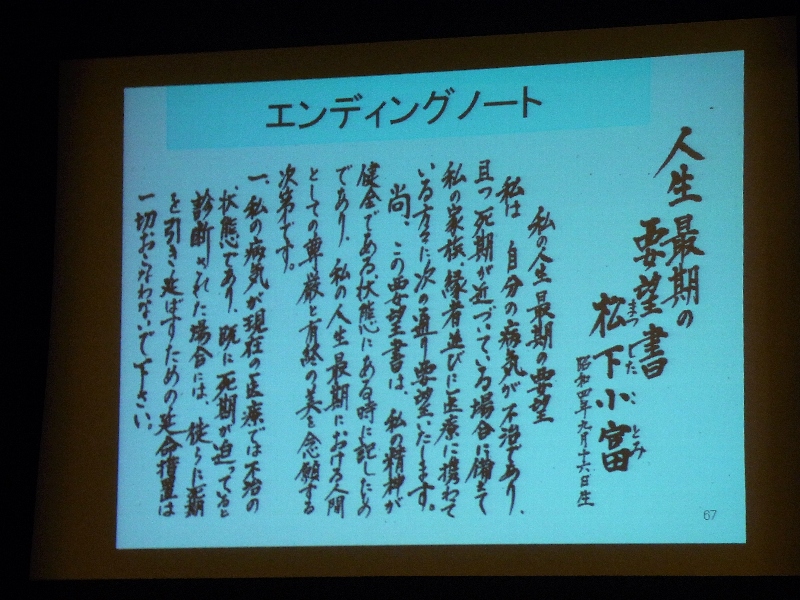 エンディングノート
人生最期の
要望書
松下小富
まつしたことみ
昭和四年九月十六日生
私の人生最期の要望
私は 自分の病気が不治であり、
且つ死期が近づいている場合に備えて
私の家族、縁者並びに医療に携わて
いる方々に次の通り要望いたします。
尚、この要望書は、私の精神が
健全である状態にある時に記したもの
であり、私の人生最期における人間
としての尊厳と有終の美を念願する
次第です。
一、私の病気が現在の医療では不治の
状態であり、既に死期が迫っていると
診断された場合には、徒らに死期
を引き延ばすための延命措置は
一切おこなわないで下さい
67